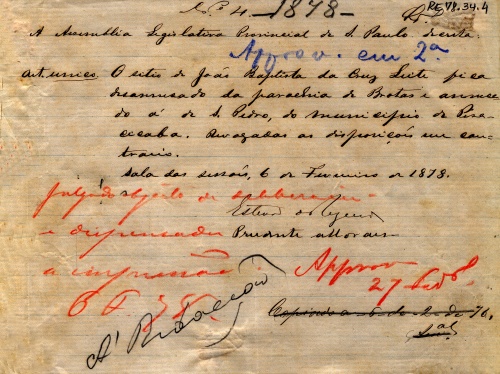 N. 4 - 1878 -
RE 78.34.4
A Assembléa Legislativa Provincial de S. Paulo decreta
Approv. em 2ª
Art. unico. O sitio de João Baptista da Cruz Leite fica
desannexado da parochia de Brotas e annexo
do á de S. Pedro, do municipio de Pira-
cicaba. Revogadas as disposições em con-
trario.
Sala das sessões, 6 de Fevereiro de 1878.
julgado objecto de deliberação
e dispensada
a impressão
Prudente de Moraes
Approv
27 Fev 78
6 F 78
A' Redacção
Copiado a 6 de de 76.